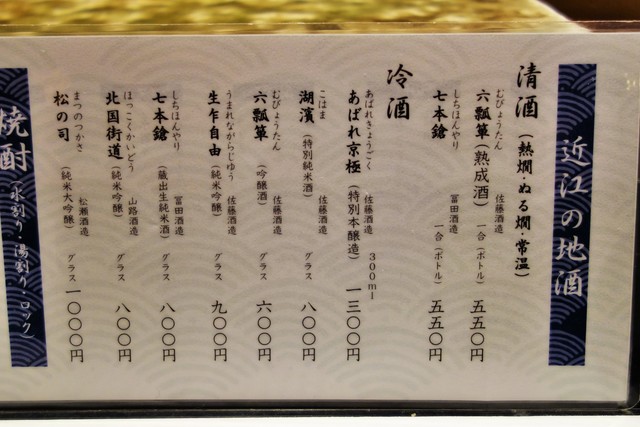 近江の地酒
清酒(熱燗・ぬる燗・常温)
むびょうたん
六瓢箪(熟成酒) 佐藤酒造 一合(ボトル) 五五〇円
しちほんやり
七本鎗 冨田酒造 一合(ボトル) 五五〇円
冷酒
あばれきょうごく
あばれ京極(特別本醸造) 佐藤酒造 300ml 一三〇〇円
こはま
湖濱(特別純米酒) 佐藤酒造 グラス 八〇〇円
むびょうたん
六瓢箪(吟醸酒) 佐藤酒造 グラス 六〇〇円
うまれながらじゆう
生乍自由(純米吟醸) 佐藤酒造 グラス 九〇〇円
しちほんやり
七本鎗(蔵出生純米酒) 冨田酒造 グラス 八〇〇円
ほっこくかいどう
北国街道(純米吟醸) 山路酒造 グラス 八〇〇円
まつのつかさ
松の司(純米大吟醸) 松瀬酒造 グラス 一〇〇〇円
焼酎(水割り・湯割り・ロック)